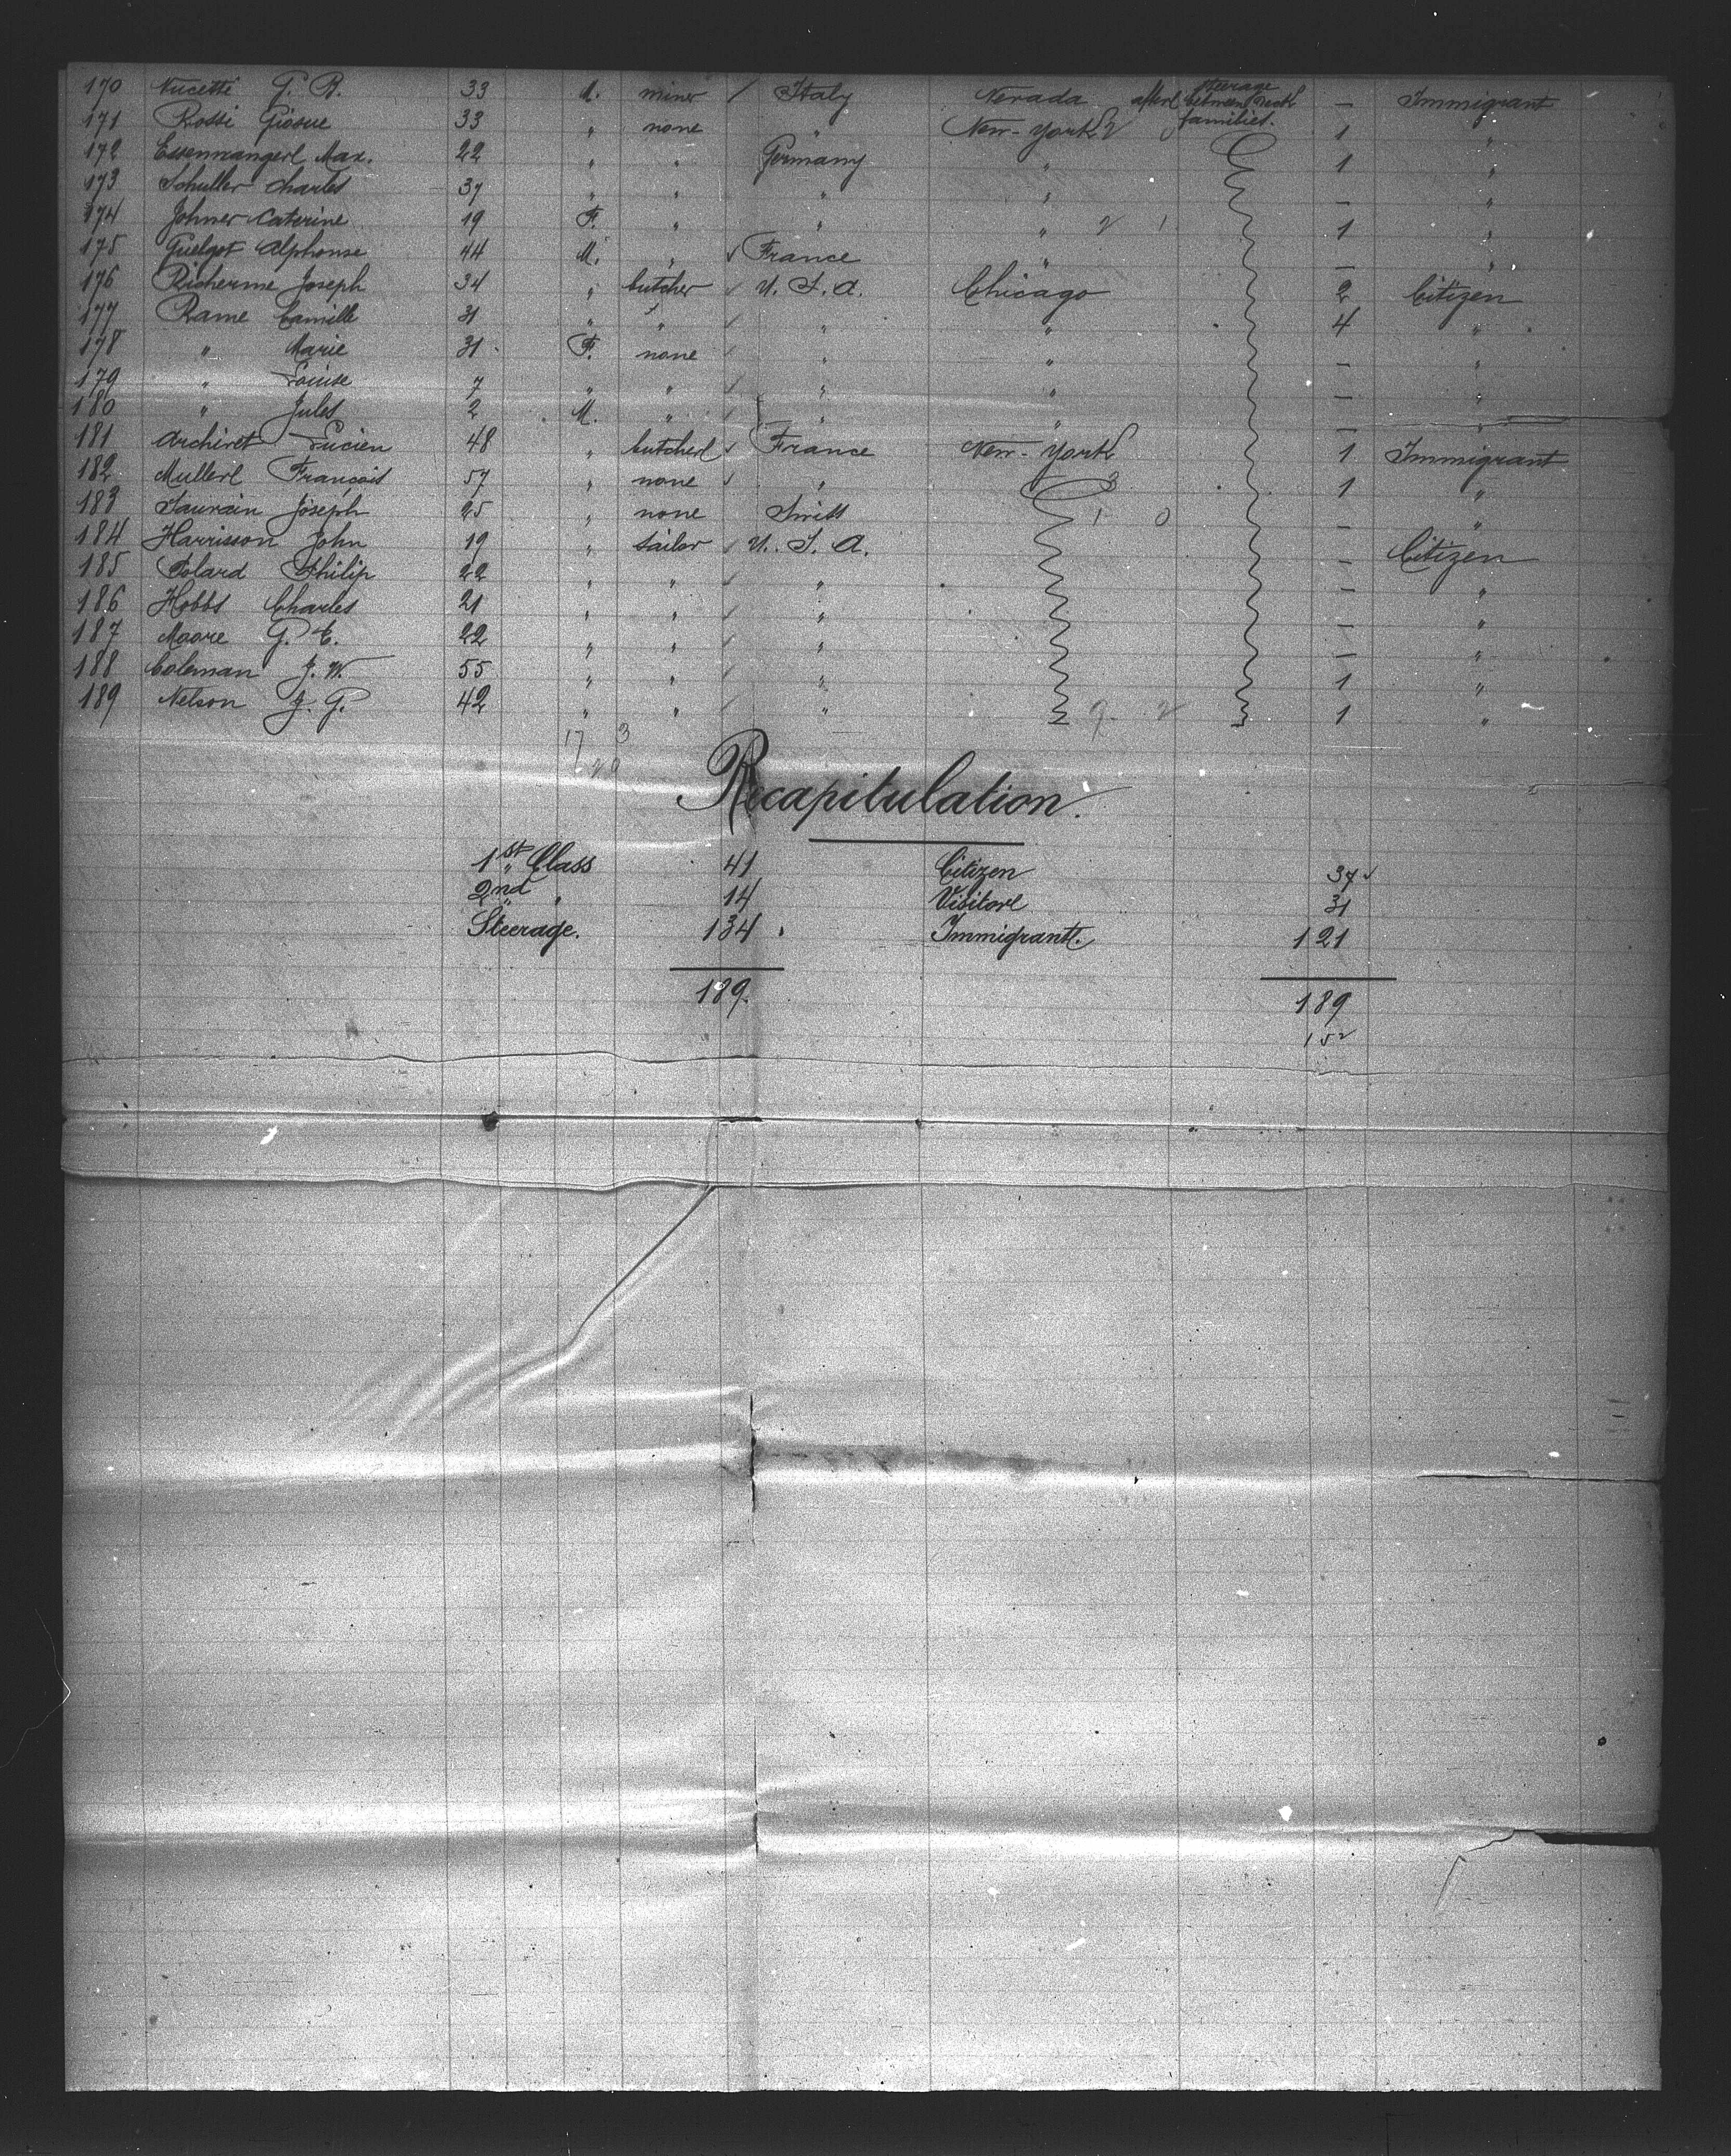 170 Nucetti G. B. 33 M. miner / Italy Nevada afterl between deck steerage — Immigrant
171 Rossi Giosue 33 " none " New-York 2 families. 1 "
172 Essenwangerl Max. 22 " " Germany " 1 "
173 Schuller Charles 37 " " " " — "
174 Johner Caterine 19 F. " " " 2 1 1 "
175 Guelgot Alphonse 44 M. " √ France " — "
176 Richerme Joseph 34 " butcher √ U. S. A. Chicago 2 Citizen
177 Rame Camille 31 " " √ " " 4 "
178 " Marie 31 F. none / " " — "
179 " Louise 7 " " / " " — "
180 " Jules 2 M. " / " " — "
181 Archiret Lucien 48 " butcherl √ France New-York 1 Immigrant
182 Mullerl François 57 " none √ " 3 1 "
183 Saurain Joseph 25 " none Swiss 1 0 — "
184 Harrisson John 19 " sailor √ U. S. A. — Citizen
185 Polard Philip 22 " " / " — "
186 Hobbs Charles 21 " " / " — "
187 Moore G. E. 22 " " / " — "
188 Coleman J. W. 55 " " / " 1 "
189 Nelson J. G. 42 " " / " 2 2 1 "
17 3
20
Recapitulation.
1st Class 41 Citizen 37 √
2nd " 14 Visitorl 31
Steerage. 134 Immigrantl. 121
189. 189
152